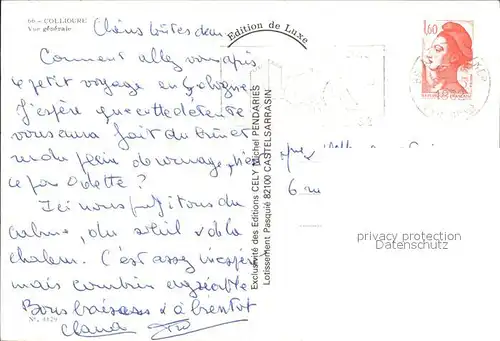 66 - COLLIOURE
Vue générale
Chers
Edition de Luxe
1,60
Comment allez vous après
le petit voyage en Sologne
J'espère que cette détente
vous aura fait du bien et
du plein de courage, n'est
ce pas Odette ?
Ici nous profitons du
calme, du soleil et de la
chaleur. C'est assez inespéré
mais combien agréable
Bons baisers et à bientôt
Exclusivité des Editions CELY Michel PENDARIES
Lotissement Pasquié 82100 CASTELSARRASIN
privacy protection
Datenschutz